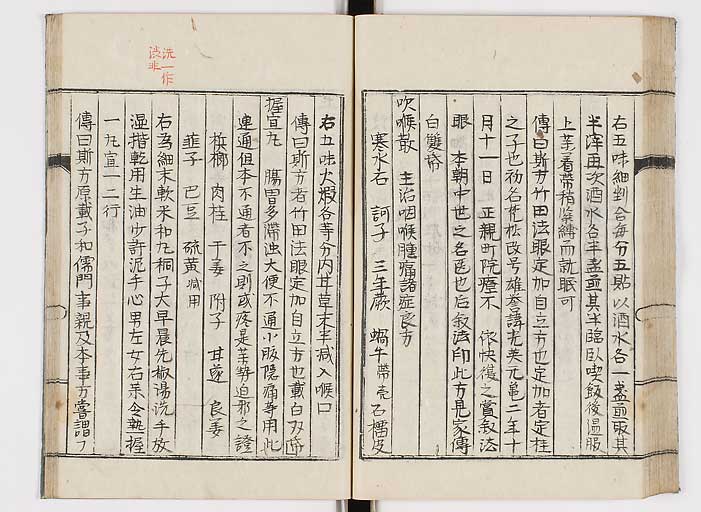 右五味細剉合每分五貼以酒水各一盞煎取其
半滓再次酒水各半盞煎其半臨臥喫飯後温服
上華看帶稍緊縛而就眠可
傳曰斯方竹田法眼定加自立方也定加者定桂
之子也初名梵松改号雄參諱光英元亀二年十
月十一日 正親町院瘧不 依快復之賞叙法
眼 本朝中世之名医也后叙法印此方見家傳
白雙帋
吹喉散 主治咽喉腫痛諸症良方
寒水石 訶子 三年蕨 蝸牛帶壳 石榴皮
右五味火煅各等分内耳草末半減入喉口
傳曰斯方者竹田法眼定加自立方也載白双帋
握宣丸 腸胃多滯浊大便不通小腹隠痛等用此
速通但本不通者不之則或疼是等勢迫邪之證
檳榔 肉桂 干姜 附子 甘遂 良姜
韮子 巴豆 硫黄減用
右為細末軟米和丸桐子大早晨先椒湯洗手放
温揩乾用生油少許泥手心男左女右呆令熱握
一丸宣一二行
傳曰斯方原載子和儒門事親及本事方嘗謂了
洗一作
渋非